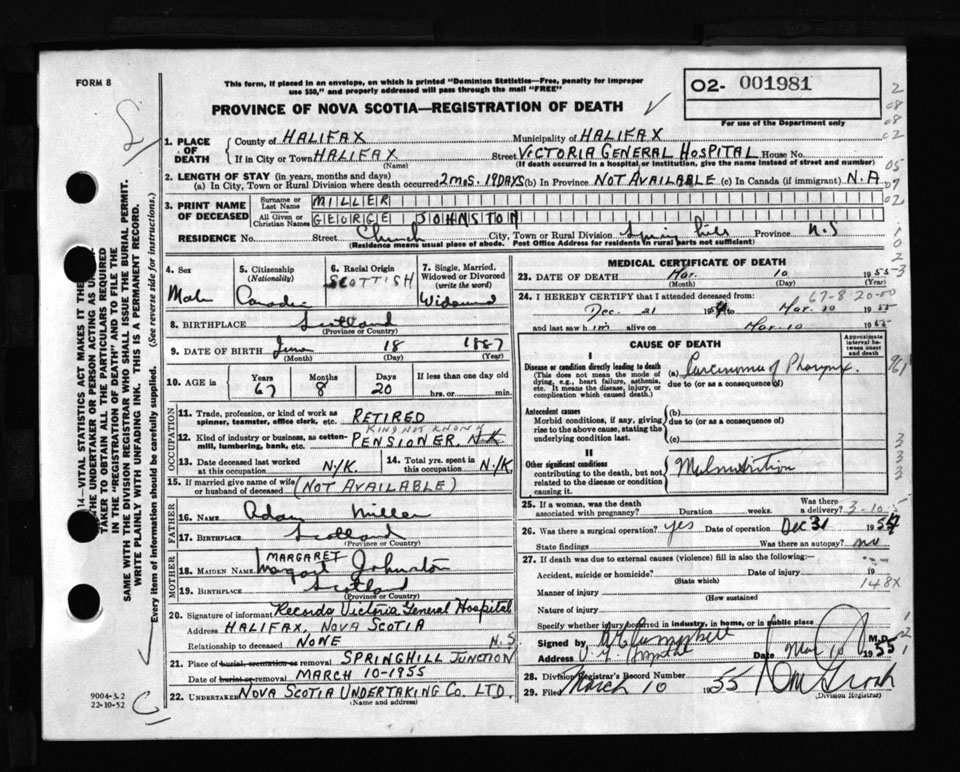 FORM 8
This form, if placed in an envelope, on which is printed "Dominion Statistics—Free, penalty for improper
use $50," and properly addressed will pass through the mail "FREE"
PROVINCE OF NOVA SCOTIA—REGISTRATION OF DEATH
O2- 001981
For use of the Department only
1. PLACE OF DEATH
County of HALIFAX Municipality of HALIFAX
If in City or Town HALIFAX Street VICTORIA GENERAL HOSPITAL House No.
(Name) (If death occurred in a hospital or institution, give the name instead of street and number)
2. LENGTH OF STAY (in years, months and days)
(a) In City, Town or Rural Division where death occurred 2 MOS. 19 DAYS (b) In Province NOT AVAILABLE (c) In Canada (if immigrant) N.A
3. PRINT NAME OF DECEASED
Surname or Last Name MILLER
All Given or Christian Names GEORGE JOHNSTON
RESIDENCE No. Street Church City, Town or Rural Division Spring hill Province N.S
(Residence means usual place of abode. Post Office Address for residents in rural parts not sufficient)
4. Sex
Male
5. Citizenship (Nationality)
6. Racial Origin
SCOTTISH
7. Single, Married, Widowed or Divorced (write the word)
Widowed
8. BIRTHPLACE Scotland
(Province or Country)
9. DATE OF BIRTH June 18 1887
(Month) (Day) (Year)
10. AGE in Years Months Days If less than one day old
67 8 20 hrs. or min.
OCCUPATION
11. Trade, profession, or kind of work as spinner, teamster, office clerk, etc. RETIRED
KIND NOT KNOWN
12. Kind of industry or business, as cotton-mill, lumbering, bank, etc. PENSIONER N.K.
13. Date deceased last worked at this occupation N/K.
14. Total yrs. spent in this occupation N./K.
15. If married give name of wife or husband of deceased (NOT AVAILABLE)
FATHER
16. Name Adam Miller
17. BIRTHPLACE Scotland
(Province or Country)
MOTHER
MARGARET
18. MAIDEN NAME Margaret Johnston
19. BIRTHPLACE Scotland
(Province or Country)
20. Signature of informant Records Victoria General Hospital
Address HALIFAX, NOVA SCOTIA
Relationship to deceased NONE
N.S.
21. Place of burial, cremation or removal SPRINGHILL JUNCTION
Date of burial or removal MARCH 10-1955
22. UNDERTAKER NOVA SCOTIA UNDERTAKING CO. LTD.
(Name and address)
MEDICAL CERTIFICATE OF DEATH
23. DATE OF DEATH Mar. 10 1955
(Month) (Day) (Year)
67-8 20-00
24. I HEREBY CERTIFY that I attended deceased from:
Dec. 21 1954 to Mar. 10 1955
and last saw him alive on Mar. 10 1955
CAUSE OF DEATH
Approximate interval between onset and death
I
Disease or condition directly leading to death
(This does not mean the mode of dying, e.g., heart failure, asthenia, etc. It means the disease, injury, or complication which caused death.)
(a) Carcinoma of Pharynx.
due to (or as a consequence of)
Antecedent causes
Morbid conditions, if any, giving rise to the above cause, stating the underlying condition last.
(b)
due to (or as a consequence of)
(c)
II
Other significant conditions
contributing to the death, but not related to the disease or condition causing it.
Malnutrition
25. If a woman, was the death associated with pregnancy? Duration weeks. Was there a delivery? 3-10
26. Was there a surgical operation? yes Date of operation Dec 31 1954
State findings Was there an autopsy? no
27. If death was due to external causes (violence) fill in also the following:—
Accident, suicide or homicide? Date of injury 19
(State which)
148X
Manner of injury
(How sustained
Nature of injury
Specify whether injury occurred in industry, in home, or in public place
Signed by M.D.
Address V. G. Hospital Date Mar 10 1955
28. Division Registrar's Record Number
29. Filed March 10 1955
(Division Registrar)
14—VITAL STATISTICS ACT MAKES IT THE
THE UNDERTAKER OR PERSON ACTING AS UN
TAKER TO OBTAIN ALL THE PARTICULARS REQUIRED
IN THE "REGISTRATION OF DEATH" AND TO FILE THE
SAME WITH THE DIVISION REGISTRAR WHO SHALL ISSUE THE BURIAL PERMIT.
WRITE PLAINLY WITH UNFADING INK. THIS IS A PERMANENT RECORD.
Every item of information should be carefully supplied. (See reverse side for instructions.)
9004-3.2
22-10-52